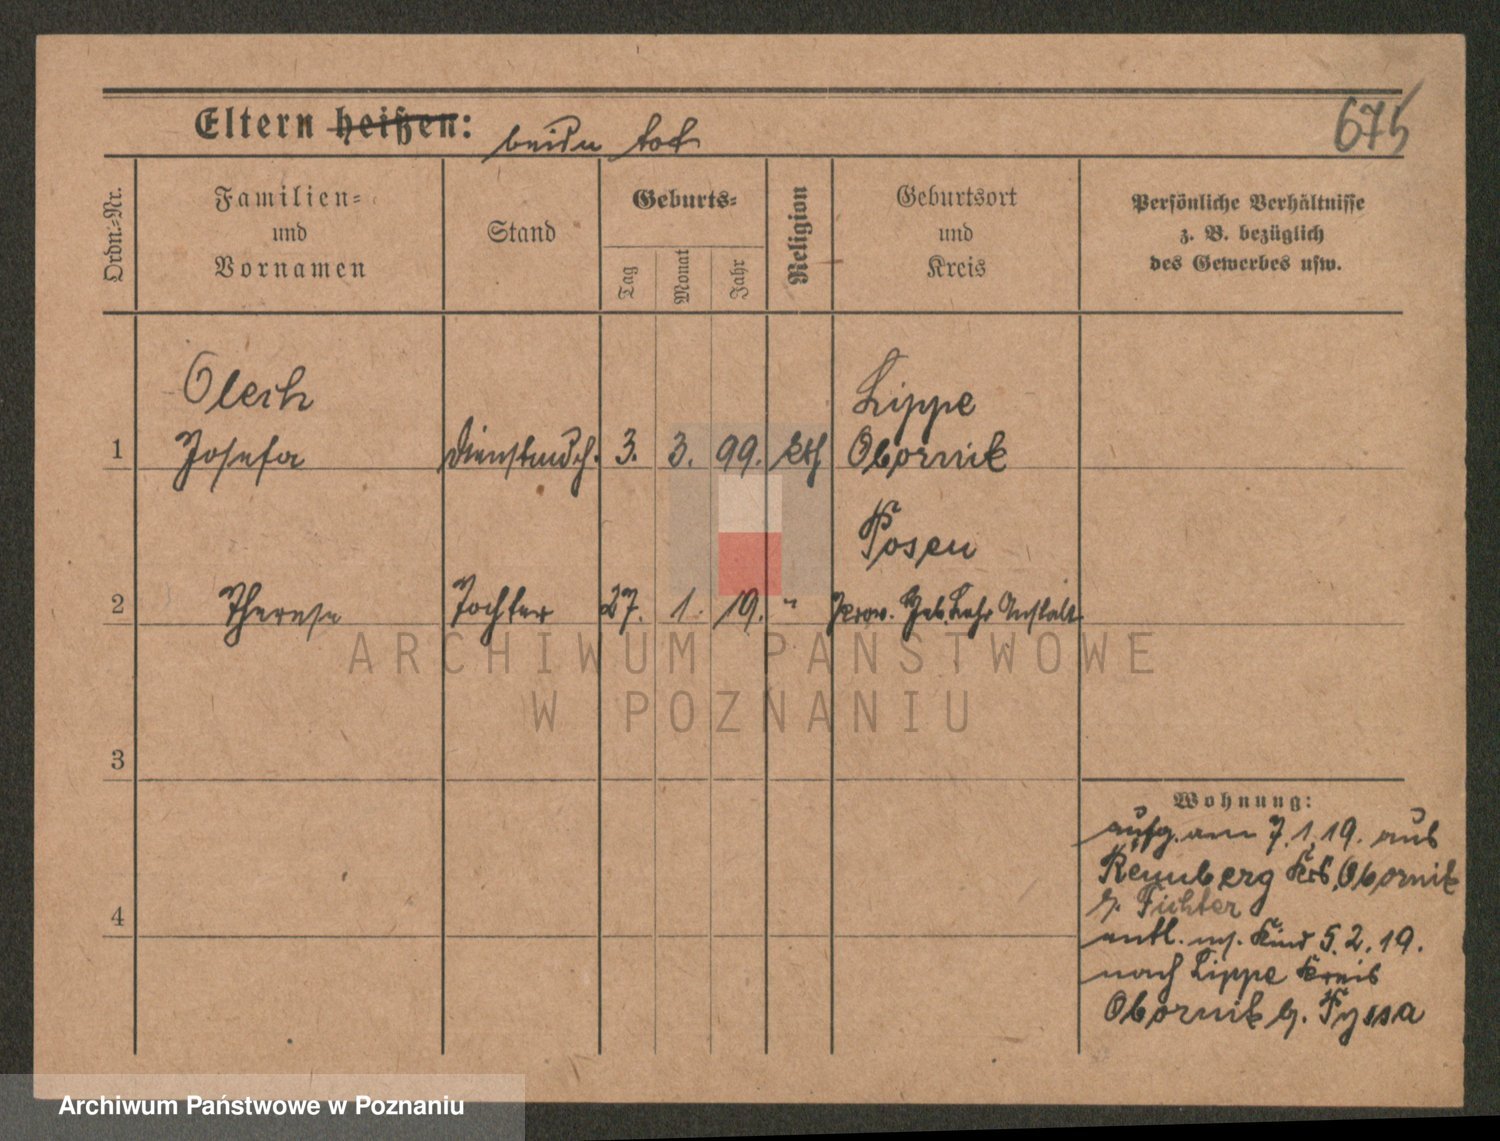 675
Eltern heißen: beide tot
Ordn.-Nr.
Familien- und Vornamen
Stand
Geburts-
Tag
Monat
Jahr
Religion
Geburtsort und Kreis
Persönliche Verhältnisse
z. B. bezüglich
des Gewerbes usw.
Olech
Lippe
1 Josefa Dienstmdch. 3. 3. 99. kth Obornik
Posen
2 Therese Tochter 27. 1. 19. " Prov. Heb. Lehr Anstalt
3
4
Wohnung:
aufg. am 7.1.19. aus
Rennberg Krs. Obornik
b. Fichter
entl. m. Kind 5.2.19.
nach Lippe Kreis
Obornik b. Pyssa
ARCHIWUM PAŃSTWOWE
W POZNANIU
Archiwum Państwowe w Poznaniu